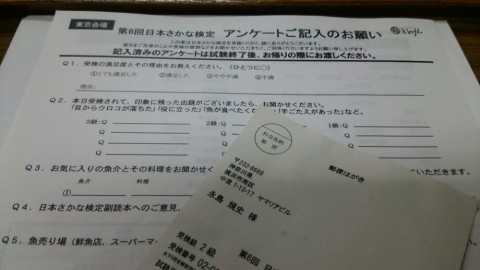 東京会場
第6回日本さかな検定 アンケートご記入のお願い
この度は日本さかな検定を受検いただき、誠にありがとうございます。
記入済みのアンケートは試験終了後、お帰りの際にお渡しください。
Q1．受検の満足度とその理由をお教えください。（ひとつに○）
①とても満足した ②満足した ③やや不満 ④不満
理由：
Q2．本日受検されて、印象に残った出題がございましたら、お聞かせください。
「目からウロコが落ちた」「役に立った」「魚が食べたくなった」「手ごたえがあった」など。
3級：Q 2級：Q 1級：Q
Q Q Q
Q Q
Q Q
Q3．お気に入りの魚介とその料理をお聞かせ
魚介 料理
①
Q4．日本さかな検定副読本へのご意見、
Q5．魚売り場（鮮魚店、スーパーマ
料金後納
郵便
郵便はがき
〒232-0066
神奈川県
横浜市南区
ヤマリアビル
永島 様
受検級 2級
第6回
受検番号 02-0
試験日